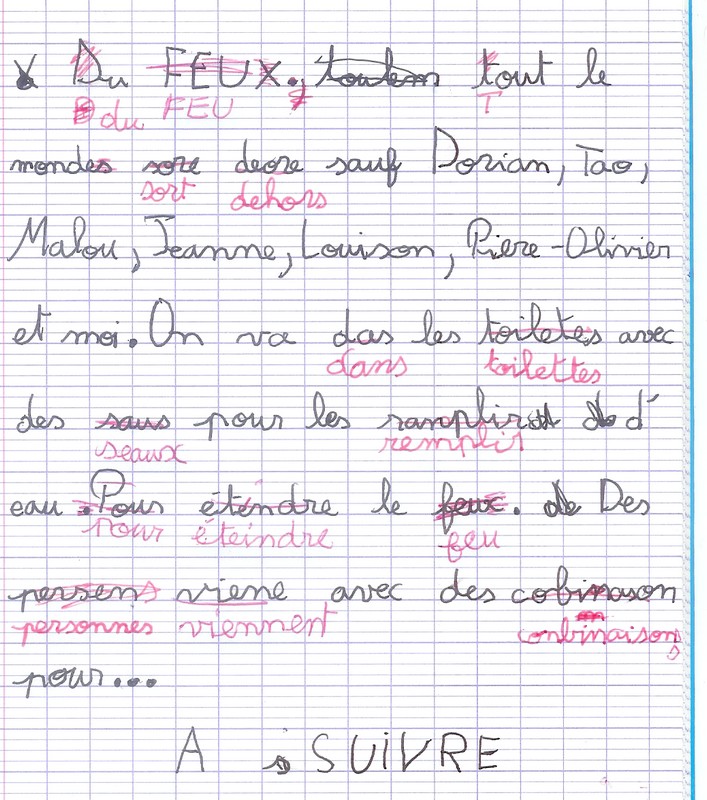 Du FEUX. tout le
du FEU T
mondes sore deore sauf Dorian, Tao,
sort dehors
Malou, Jeanne, Louison, Piere-Olivier
et moi. On va das les toiletes avec
dans toilettes
des saus pour les ramplir d'
seaux remplir
eau. Pour étendre le feux. de Des
pour éteindre feu
persens viene avec des cobinason
personnes viennent conbinaisons
pour...
A SUIVRE